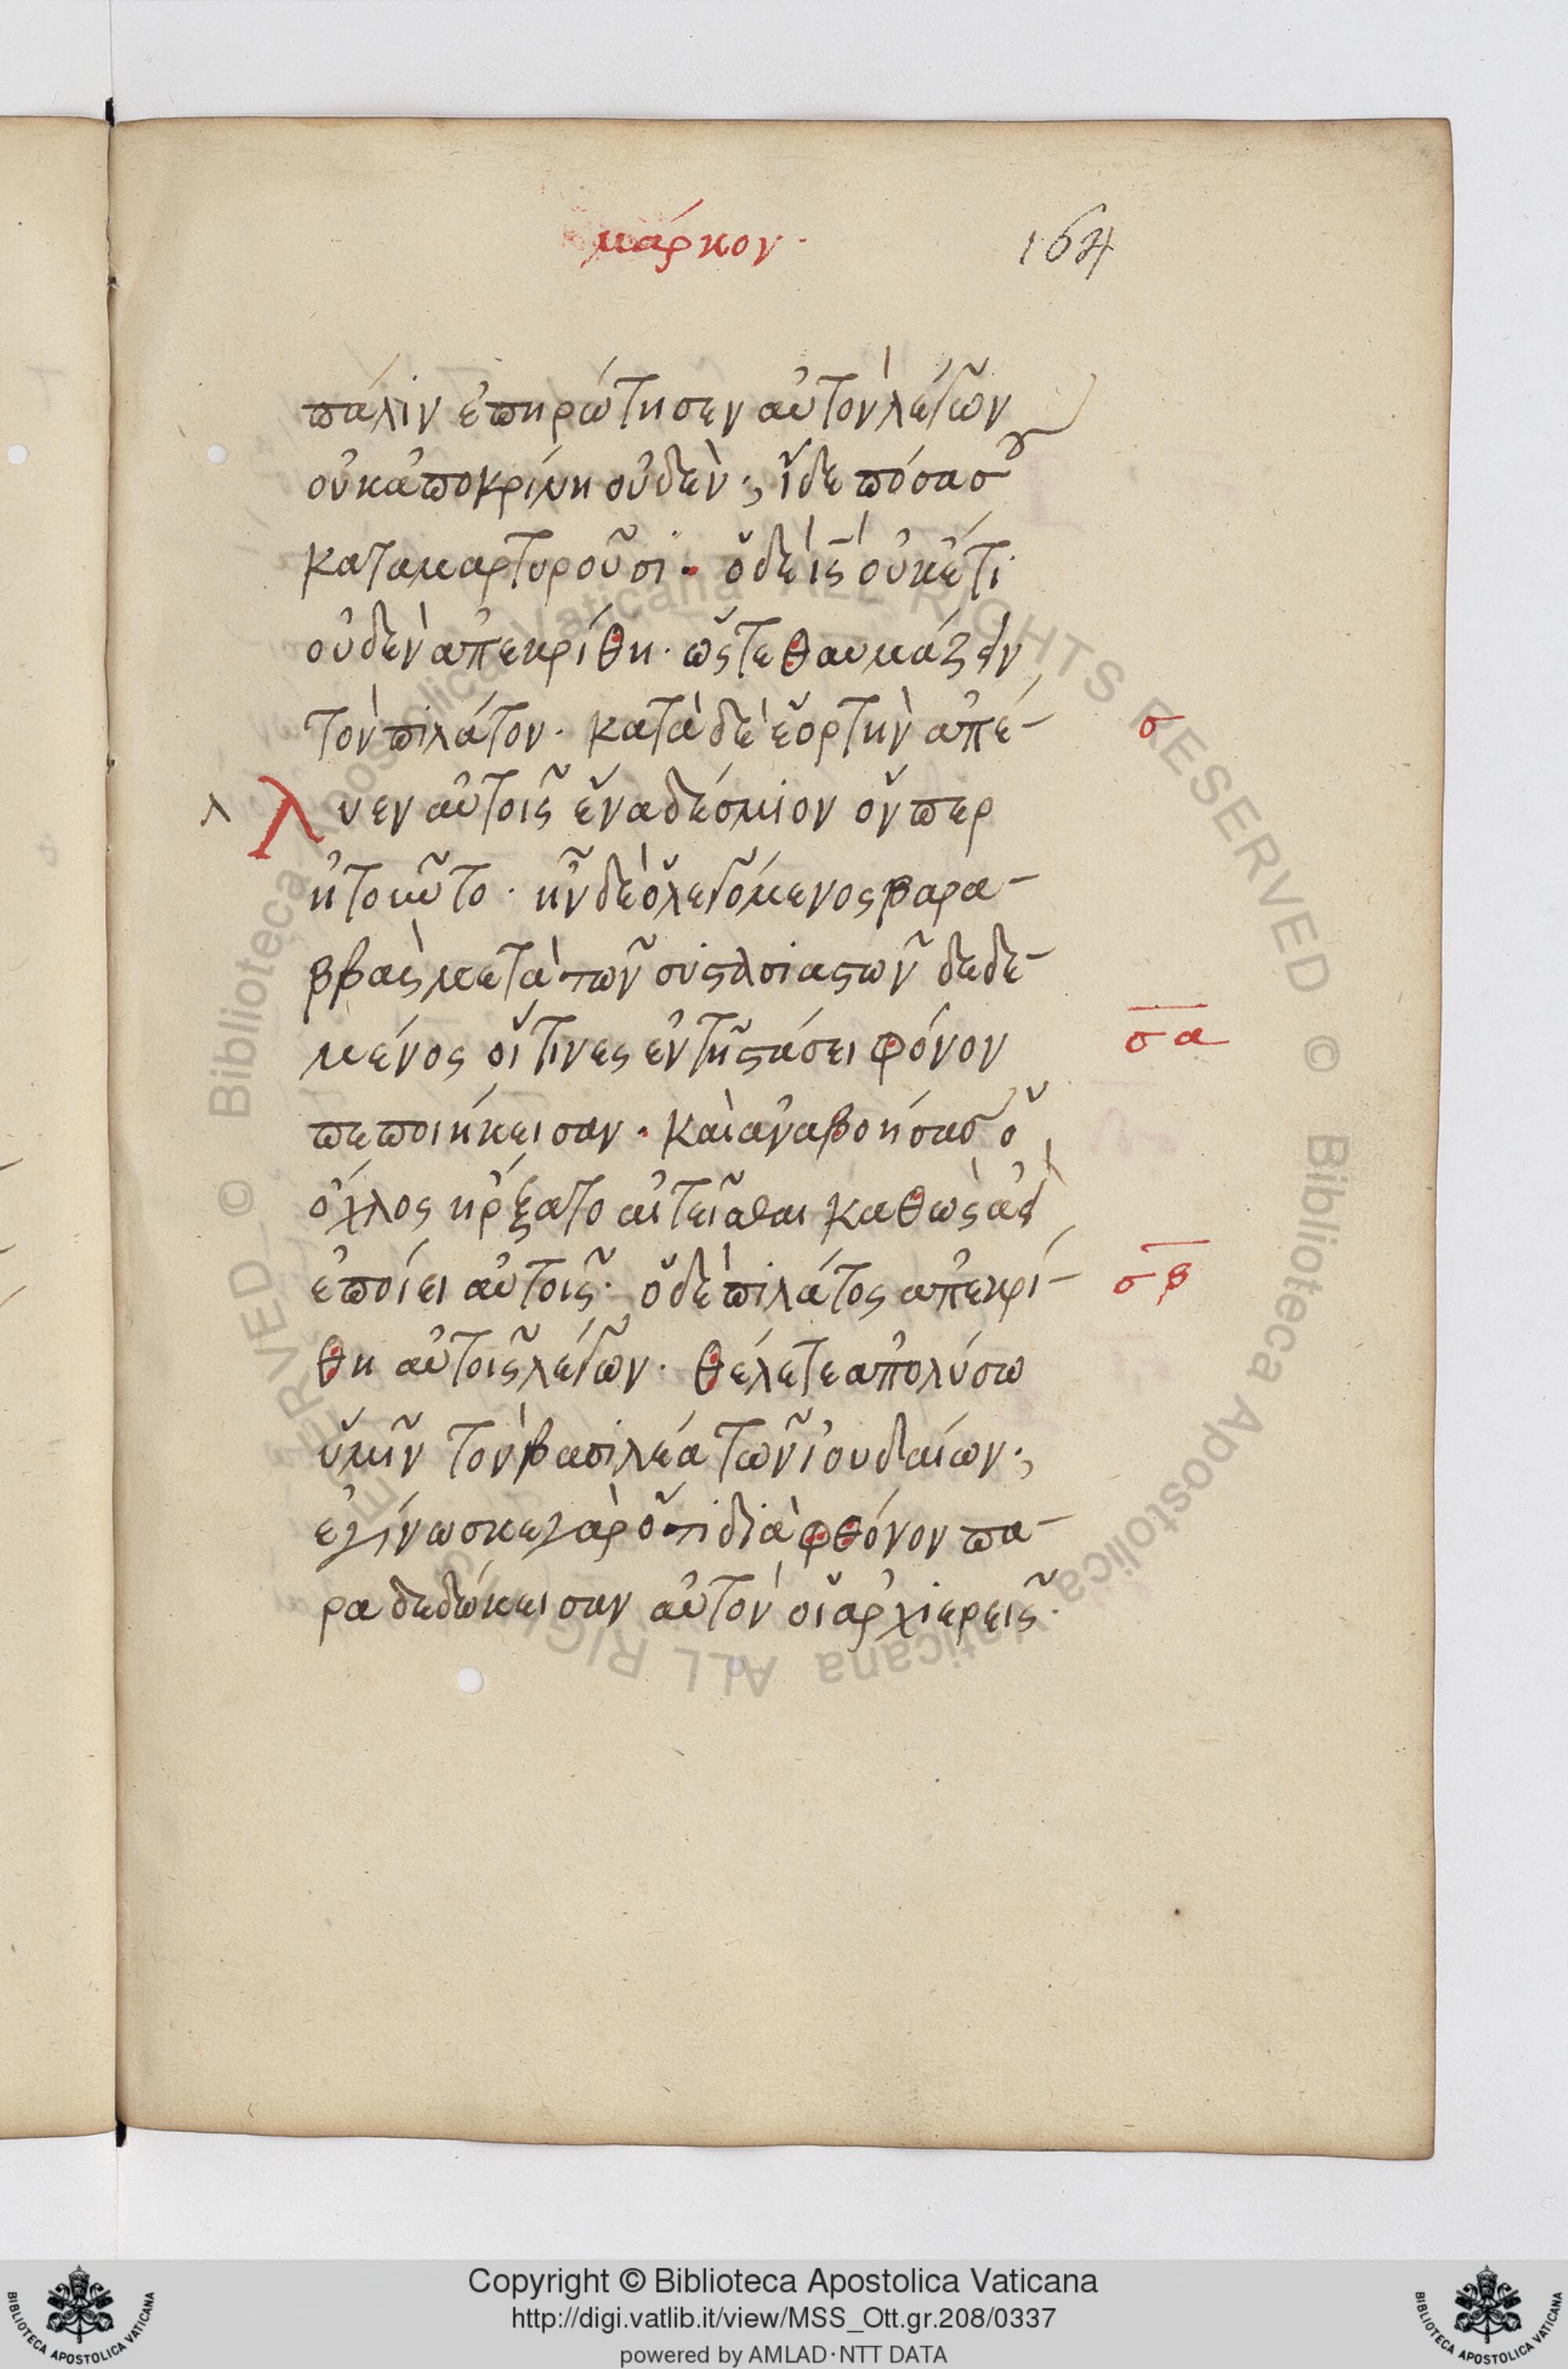 μάρκον·
164
πάλιν ἐπηρώτησεν αὐτὸν λέγων
οὐκ ἀποκρίνη οὐδὲν; ἴδε πόσα σου
καταμαρτυροῦσι. ὁ δὲ ις̅ οὐκέτι
οὐδὲν ἀπεκρίθη· ὥστε θαυμάζειν
τὸν πιλάτον· κατὰ δὲ ἑορτὴν ἀπέ-
σ
λυεν αὐτοῖς ἕνα δέσμιον ὅνπερ
ἠτοῦντο· ἦν δὲ ὁ λεγόμενος βαρα-
ββὰς μετὰ τῶν συστασιαστῶν δεδε-
μένος οἵτινες ἐν τῇ στάσει φόνον
σα
πεποιήκεισαν. καὶ ἀναβοήσας ὁ
ὄχλος ἤρξατο αἰτεῖσθαι καθὼς ἀεὶ
ἐποίει αὐτοῖς· ὁ δὲ πιλάτος ἀπεκρί-
σβ
θη αὐτοῖς λέγων· θέλετε ἀπολύσω
ὑμῖν τὸν βασιλέα τῶν ἰουδαίων;
ἐγίνωσκε γὰρ ὅτι διὰ φθόνον πα-
ραδεδώκεισαν αὐτὸν οἱ ἀρχιερεῖς·
Copyright © Biblioteca Apostolica Vaticana
http://digi.vatlib.it/view/MSS_Ott.gr.208/0337
powered by AMLAD·NTT DATA